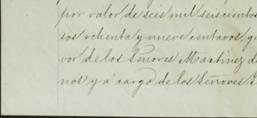 por valor de seis mil seiscientos
sos ochenta y nueve centavos, q
vor de los Señores Martinez d
nos y á cargo de los Señores S